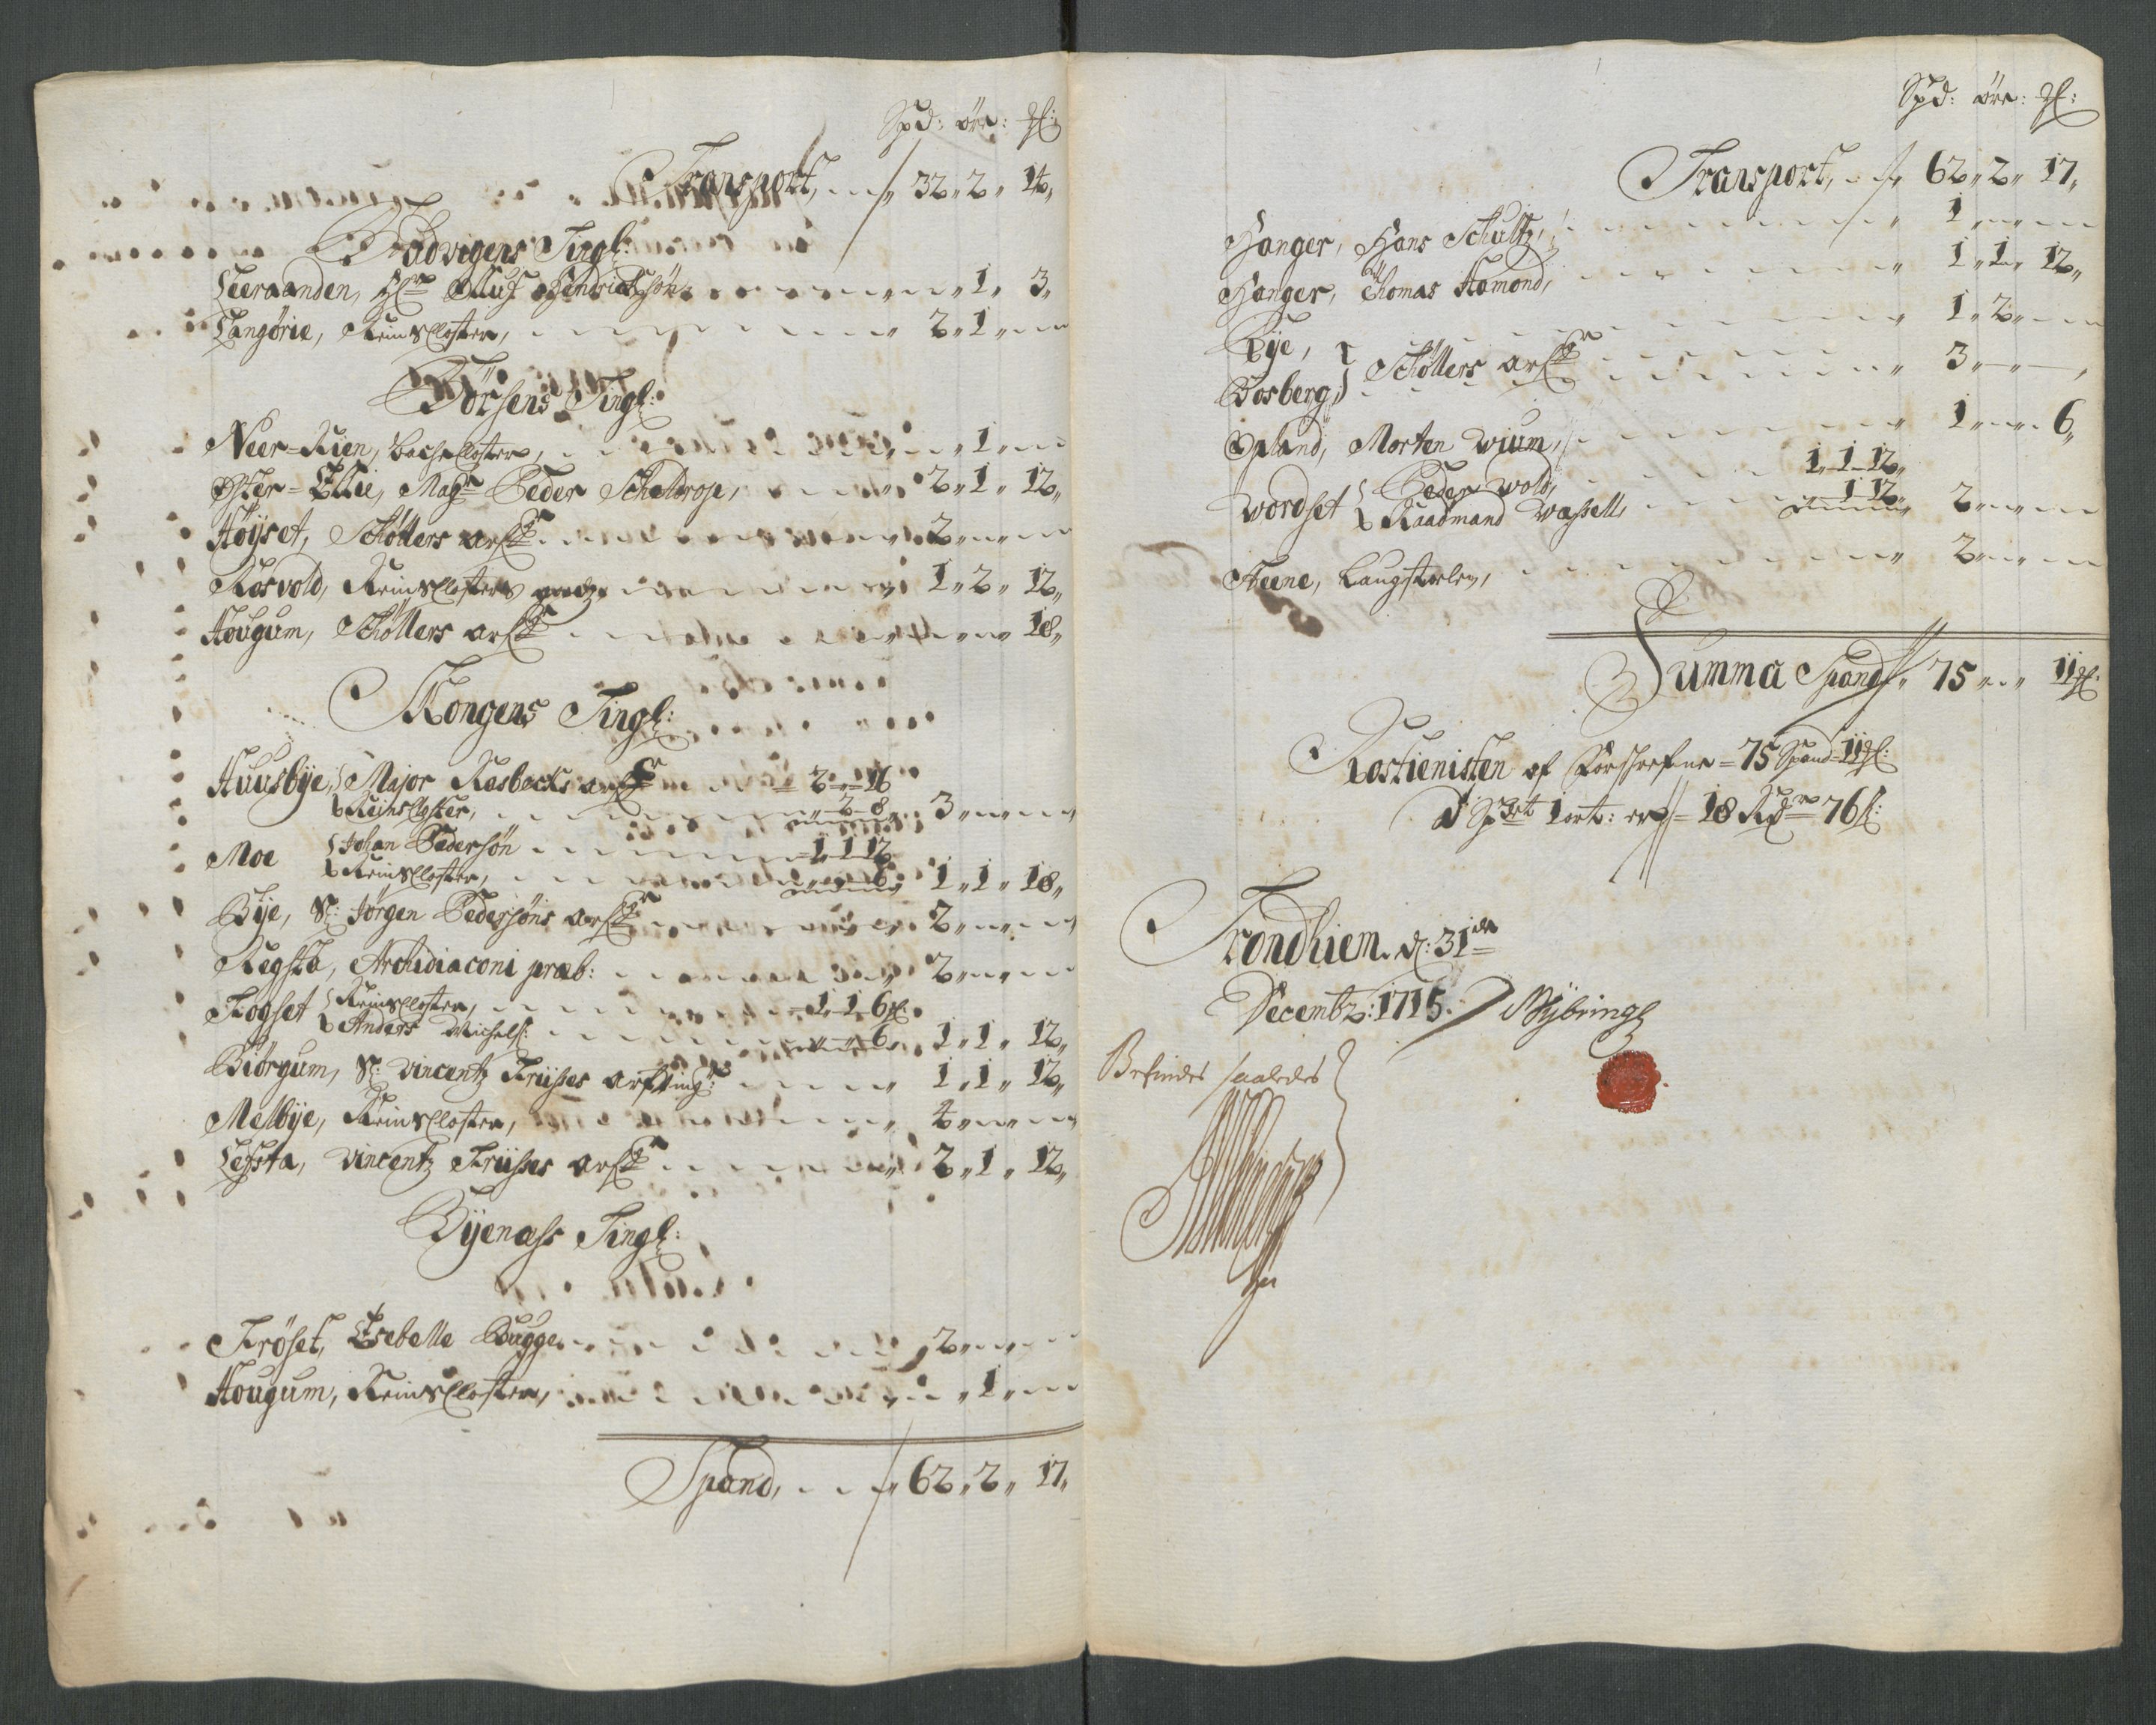 Spd: øre: ℳl:
Transport, 32 „ 2 „ 14 „
Stadvigens Tingl:
Leeraanden, Hr Oluf Hendrichsøn „ 1 „ 3 „
Langørie, Reinscloster, 2 „ 1 „
Børsens Tingl:
Neer=Rien, Bache closter, „ 1 „
Øster=Ellie, Magr Peder Scheldrop, 2 „ 1 „ 12 „
Høyset, Schøllers arf: 2 „
Rosvold, Reinsclosters 1 „ 2 „ 12 „
Hougum, Schøllers arf: 18 „
Skongens Tingl:
Huusbye, Major Kasbecks arf: 2 - 16
Reinscloster, 2 - 8 3 „
Moe Johan Pedersøn 1 - 1 12
Reinsclostr, 6 1 „ 1 „ 18 „
Bye, S: Jørgen Pedersøns arf: 2 „
Regsta, Archidiaconi præb: 2 „
Fogset Reinsclostr, 1 - 1 - 6
Anders Michels: 6 1 „ 1 „ 12 „
Biörgum, S: Vincentz Friisses arfving: 1 „ 1 „ 12 „
Melbye, Reinsclostr, 4 „
Lefsta, Vincentz Friisses arf: 2 „ 1 „ 12 „
Byenæss Tingl:
Frøset, Esebelle Bugge 2 „
Hougum, Reinsclostr, „ 1 „
Spand, 62 „ 2 „ 17 „
Spd: øre: ℳl:
Transport, 62 „ 2 „ 17 „
Hanger, Hans Schultz, 1 „
Hanger, Thomas Hamond, 1 „ 1 „ 12 „
Bye, 1 „ 2 „
Schøllers arf:
Bosberg, 3 „
Opland, Morten Wium, 1 „ 6 „
Peder Wold, 1 „ 1 - 12 „
Wordset Raadmand Wassell, 1 12 2 „
Steene, Laugstolen, 2 „
Summa Spand 75 „ „ 11
Rostienisten af Forschrefne = 75 Spand 11
â Spdet 1 ort: er = 18 Rdr 76 s:
Trondhiem. d: 31de
Decembr: 1715. Mybring
Befindes saaledes